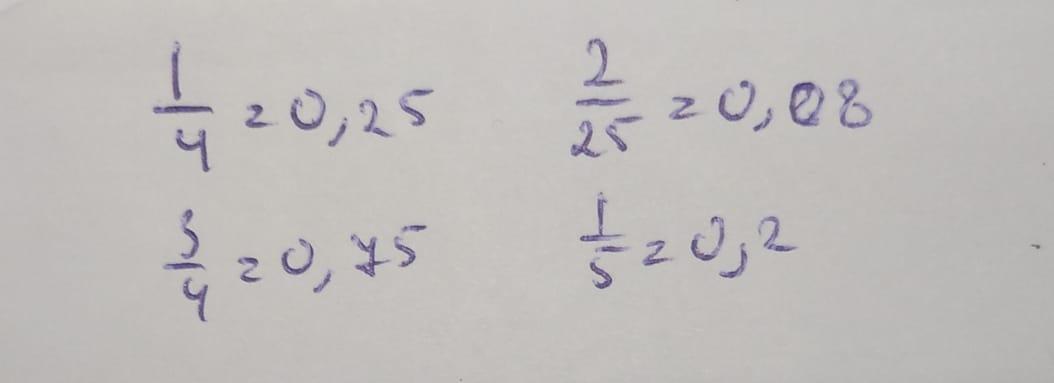 1/4 = 0,25
2/25 = 0,08
3/4 = 0,75
1/5 = 0,2